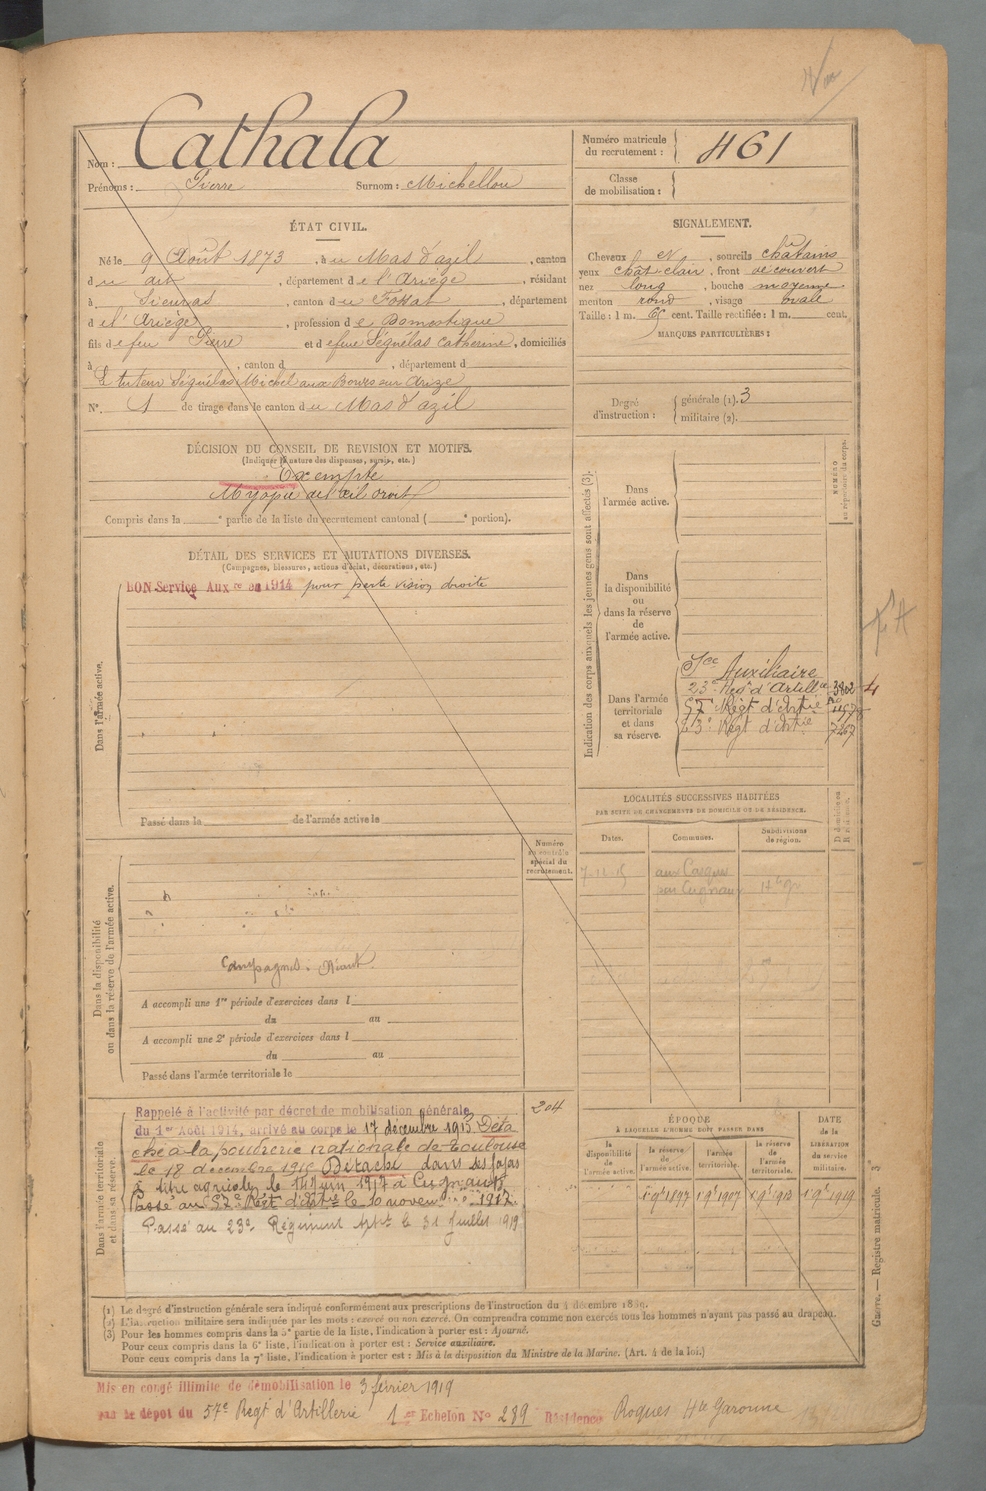 Nom : Cathala
Prénoms : Pierre Surnom : Michellou
Numéro matricule
du recrutement : 461
Classe
de mobilisation :
ÉTAT CIVIL.
Né le 9 Août 1873, à u Mas d'azil, canton
d u dit, département d e l'Ariège, résidant
à Sieuras, canton d u Fossat, département
d e l'Ariège, profession d e Domestique
fils d e feu Pierre et d e feue Séguélas Catherine, domiciliés
à , canton d , département d
Tuteur Séguélas Michel aux Bordes sur Arize
N° 1 de tirage dans le canton d u Mas d'azil
SIGNALEMENT.
Cheveux et , sourcils châtains
yeux chat. clair, front découvert
nez long, bouche moyenne
menton rond, visage ovale
Taille : 1 m. 65 cent. Taille rectifiée : 1 m. cent.
MARQUES PARTICULIÈRES :
Degré
d'instruction :
générale (1). 3
militaire (2).
DÉCISION DU CONSEIL DE REVISION ET MOTIFS.
(Indiquer la nature des dispenses, sursis, etc.)
Exempté
Myopie de l'œil droit
Compris dans la e partie de la liste du recrutement cantonal ( e portion).
DÉTAIL DES SERVICES ET MUTATIONS DIVERSES.
(Campagnes, blessures, actions d'éclat, décorations, etc.)
BON Service Aux re en 1914 pour perte vision droite
Dans l'armée active.
Passé dans la de l'armée active le
Indication des corps auxquels les jeunes gens sont affectés (3).
NUMÉRO
au répertoire du corps.
Dans
l'armée active.
Dans
la disponibilité
ou
dans la réserve
de
l'armée active.
Dans l'armée
territoriale
et dans
sa réserve.
Sce Auxiliaire
23e Regt d'Artillie 3802
57e Regt d'Artie
23e Regt d'Artie 7267
LOCALITÉS SUCCESSIVES HABITÉES
PAR SUITE DE CHANGEMENTS DE DOMICILE OU DE RÉSIDENCE.
Dates. Communes. Subdivisions
de région.
D domicile ou
R résidence.
Numéro
au contrôle
spécial du
recrutement.
204
Dans la disponibilité
ou dans la réserve de l'armée active.
Campagnes : Néant
A accompli une 1re période d'exercices dans l
du au
A accompli une 2e période d'exercices dans l
du au
Passé dans l'armée territoriale le
Dans l'armée territoriale
et dans sa réserve.
Rappelé à l'activité par décret de mobilisation générale
du 1er Août 1914, arrivé au corps le 17 décembre 1915. Déta
ché à la poudrerie nationale de Toulouse
le 18 décembre 1915 Détaché dans ses foyers
à titre agricole le 14 Juin 1917 à Cugnaux
Passé au 57e Regt d'Artie le 10 novembre 1917.
Passé au 23e Régiment Artie le 31 Juillet 1919
ÉPOQUE
À LAQUELLE L'HOMME DOIT PASSER DANS
DATE
de la
LIBÉRATION
du service
militaire.
la
disponibilité
de l'armée
active.
la réserve
de
l'armée active.
l'armée
territoriale.
la réserve
de
l'armée
territoriale.
1 9e 1897 1 9e 1907 1 9e 1913 1 9e 1919
Guerre. — Registre matricule.
(1) Le degré d'instruction générale sera indiqué conformément aux prescriptions de l'instruction du 4 décembre 1889.
(2) L'instruction militaire sera indiquée par les mots : exercé ou non exercé. On comprendra comme non exercés tous les hommes n'ayant pas passé au drapeau.
(3) Pour les hommes compris dans la 5e partie de la liste, l'indication à porter est : Ajourné.
Pour ceux compris dans la 6e liste, l'indication à porter est : Service auxiliaire.
Pour ceux compris dans la 7e liste, l'indication à porter est : Mis à la disposition du Ministre de la Marine. (Art. 4 de la loi.)
Mis en congé illimité de démobilisation le 3 février 1919
par le dépôt du 57e Regt d'Artillerie 1er Echelon N° 289 Résidence Roques Hte Garonne